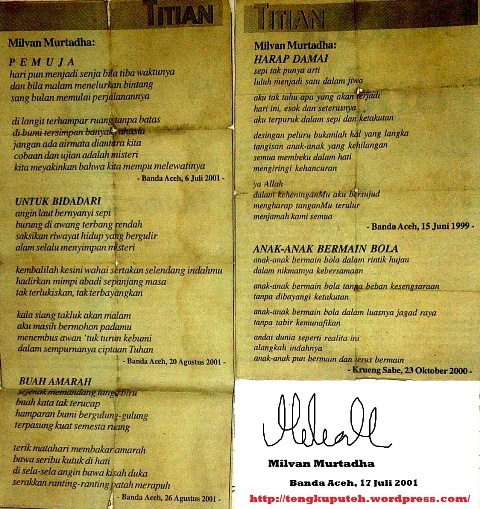 TITIAN
Milvan Murtadha:
P E M U J A
hari pun menjadi senja bila tiba waktunya
dan bila malam menelurkan bintang
sang bulan memulai perjalanannya
di langit terhampar ruang tanpa batas
di bumi tersimpan banyak rahasia
jangan ada airmata diantara kita
cobaan dan ujian adalah misteri
kita meyakinkan bahwa kita mempu melewatinya
- Banda Aceh, 6 Juli 2001 -
UNTUK BIDADARI
angin laut bernyanyi sepi
burung di awang terbang rendah
saksikan riwayat hidup yang bergulir
alam selalu menyimpan misteri
kembalilah kesini wahai sertakan selendang indahmu
hadirkan mimpi abadi sepanjang masa
tak terlukiskan, tak terbayangkan
kala siang takluk akan malam
aku masih bermohon padamu
menembus awan 'tuk turun kebumi
dalam sempurnanya ciptaan Tuhan
- Banda Aceh, 20 Agustus 2001 -
BUAH AMARAH
sejenak memandang langit biru
buah kata tak terucap
hamparan bumi bergulung-gulung
terpasung kuat semesta ruang
terik matahari membakar amarah
bawa seribu kutuk di hati
di sela-sela angin bawa kisah duka
serakkan ranting-ranting patah merapuh
- Banda Aceh, 26 Agustus 2001 -
TITIAN
Milvan Murtadha:
HARAP DAMAI
sepi tak punya arti
luluh menjadi satu dalam jiwa
aku tak tahu apa yang akan terjadi
hari ini, esok dan seterusnya
aku terpuruk dalam sepi dan ketakutan
desingan peluru bukanlah hal yang langka
tangisan anak-anak yang kehilangan
semua membeku dalam hati
mengiringi kehancuran
ya Allah
dalam keheninganMu aku bersujud
mengharap tanganMu terulur
menjamah kami semua
- Banda Aceh, 15 Juni 1999 -
ANAK-ANAK BERMAIN BOLA
anak-anak bermain bola dalam rintik hujan
dalam nikmatnya kebersamaan
anak-anak bermain bola tanpa beban kesengsaraan
tanpa dibayangi ketakutan
anak-anak bermain bola dalam luasnya jagad raya
tanpa tabir kemunafikan
andai dunia seperti realita ini
alangkah indahnya
anak-anak pun bermain dan terus bermain
- Krueng Sabe, 23 Oktober 2000 -
Milvan Murtadha
Banda Aceh, 17 Juli 2001
http://tengkuputeh.wordpress.com/